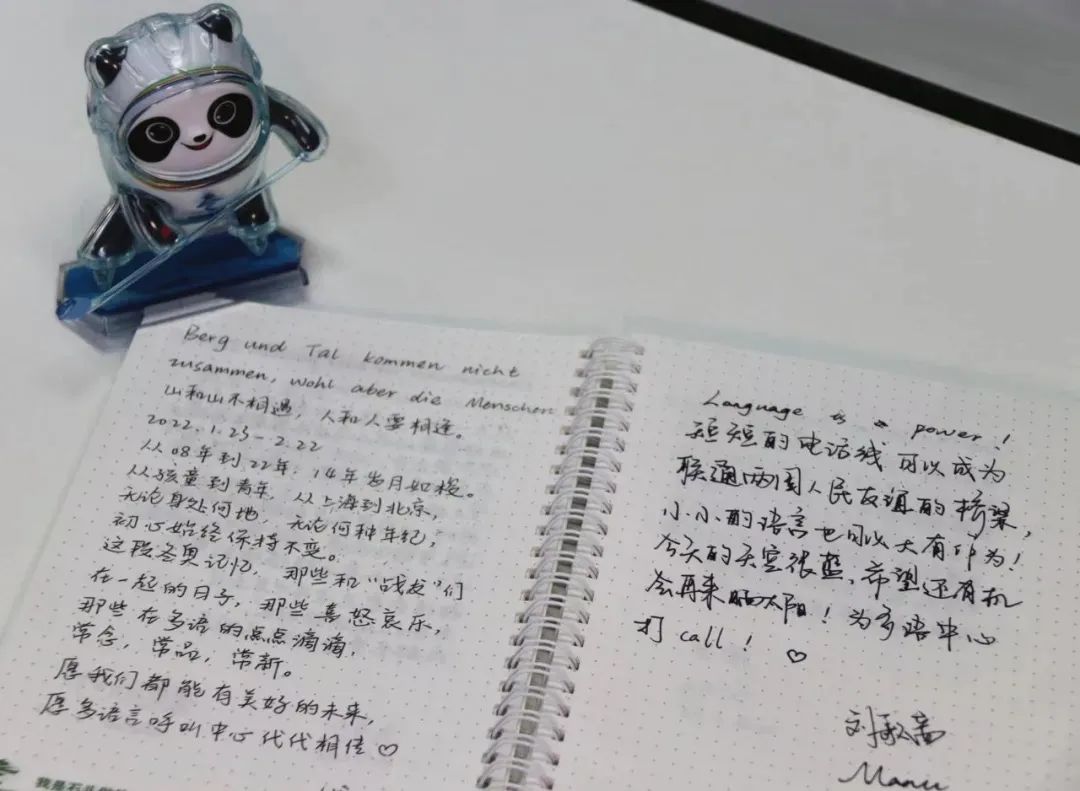 Berg und Tal kommen nicht
zusammen, wohl aber die Menschen
山和山不相遇，人和人要相逢。
2022.1.23-2.22
从08年到22年，14年岁月如梭。
从孩童到青年，从上海到北京，
无论身处何地，无论何种年纪，
初心始终保持不变。
这段冬奥记忆，那些和“战友”们
在一起的日子，那些喜怒哀乐，
那些在多语的点点滴滴，
常念，常品，常新。
愿我们都能有美好的未来，
愿多语言呼叫中心代代相传♡
我是石头
Language is power!
短短的电话线可以成为
联通两国人民友谊的桥梁，
小小的语言也可以大有作为！
今天的天空很蓝，希望还有机
会再来晒太阳！为多语中心
打call！ ♡
刘
Manu